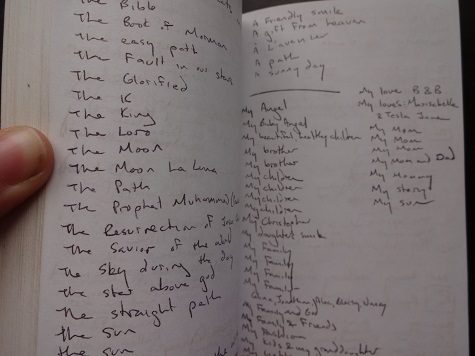 The Bible
The Book of Mormon
The easy path
The Fault in our stars
The Glorified
The K
The King
The Lord
The Moon
The Moon La Luna
The Path
The Prophet Muhammad
The Resurrection of
The Savior of the
The Sky during the day
The star above god
The straight path
the sun
the sun
A Friendly smile
A gift from heaven
A path
A sunny day
My Angel
My Baby Angel
My beautiful healthy children
My brother
My brother
My children
My children
My children
My children
My Christopher
My daughters smile
My Family
My Family
My Family
My Family
My Family and God
My Family & Friends
My kids & my granddaughter
My love B&B
My loves
& Tesla
My Mom
My Mom
My Mom
My Mom and Dad
My Mommy
My story
My sun